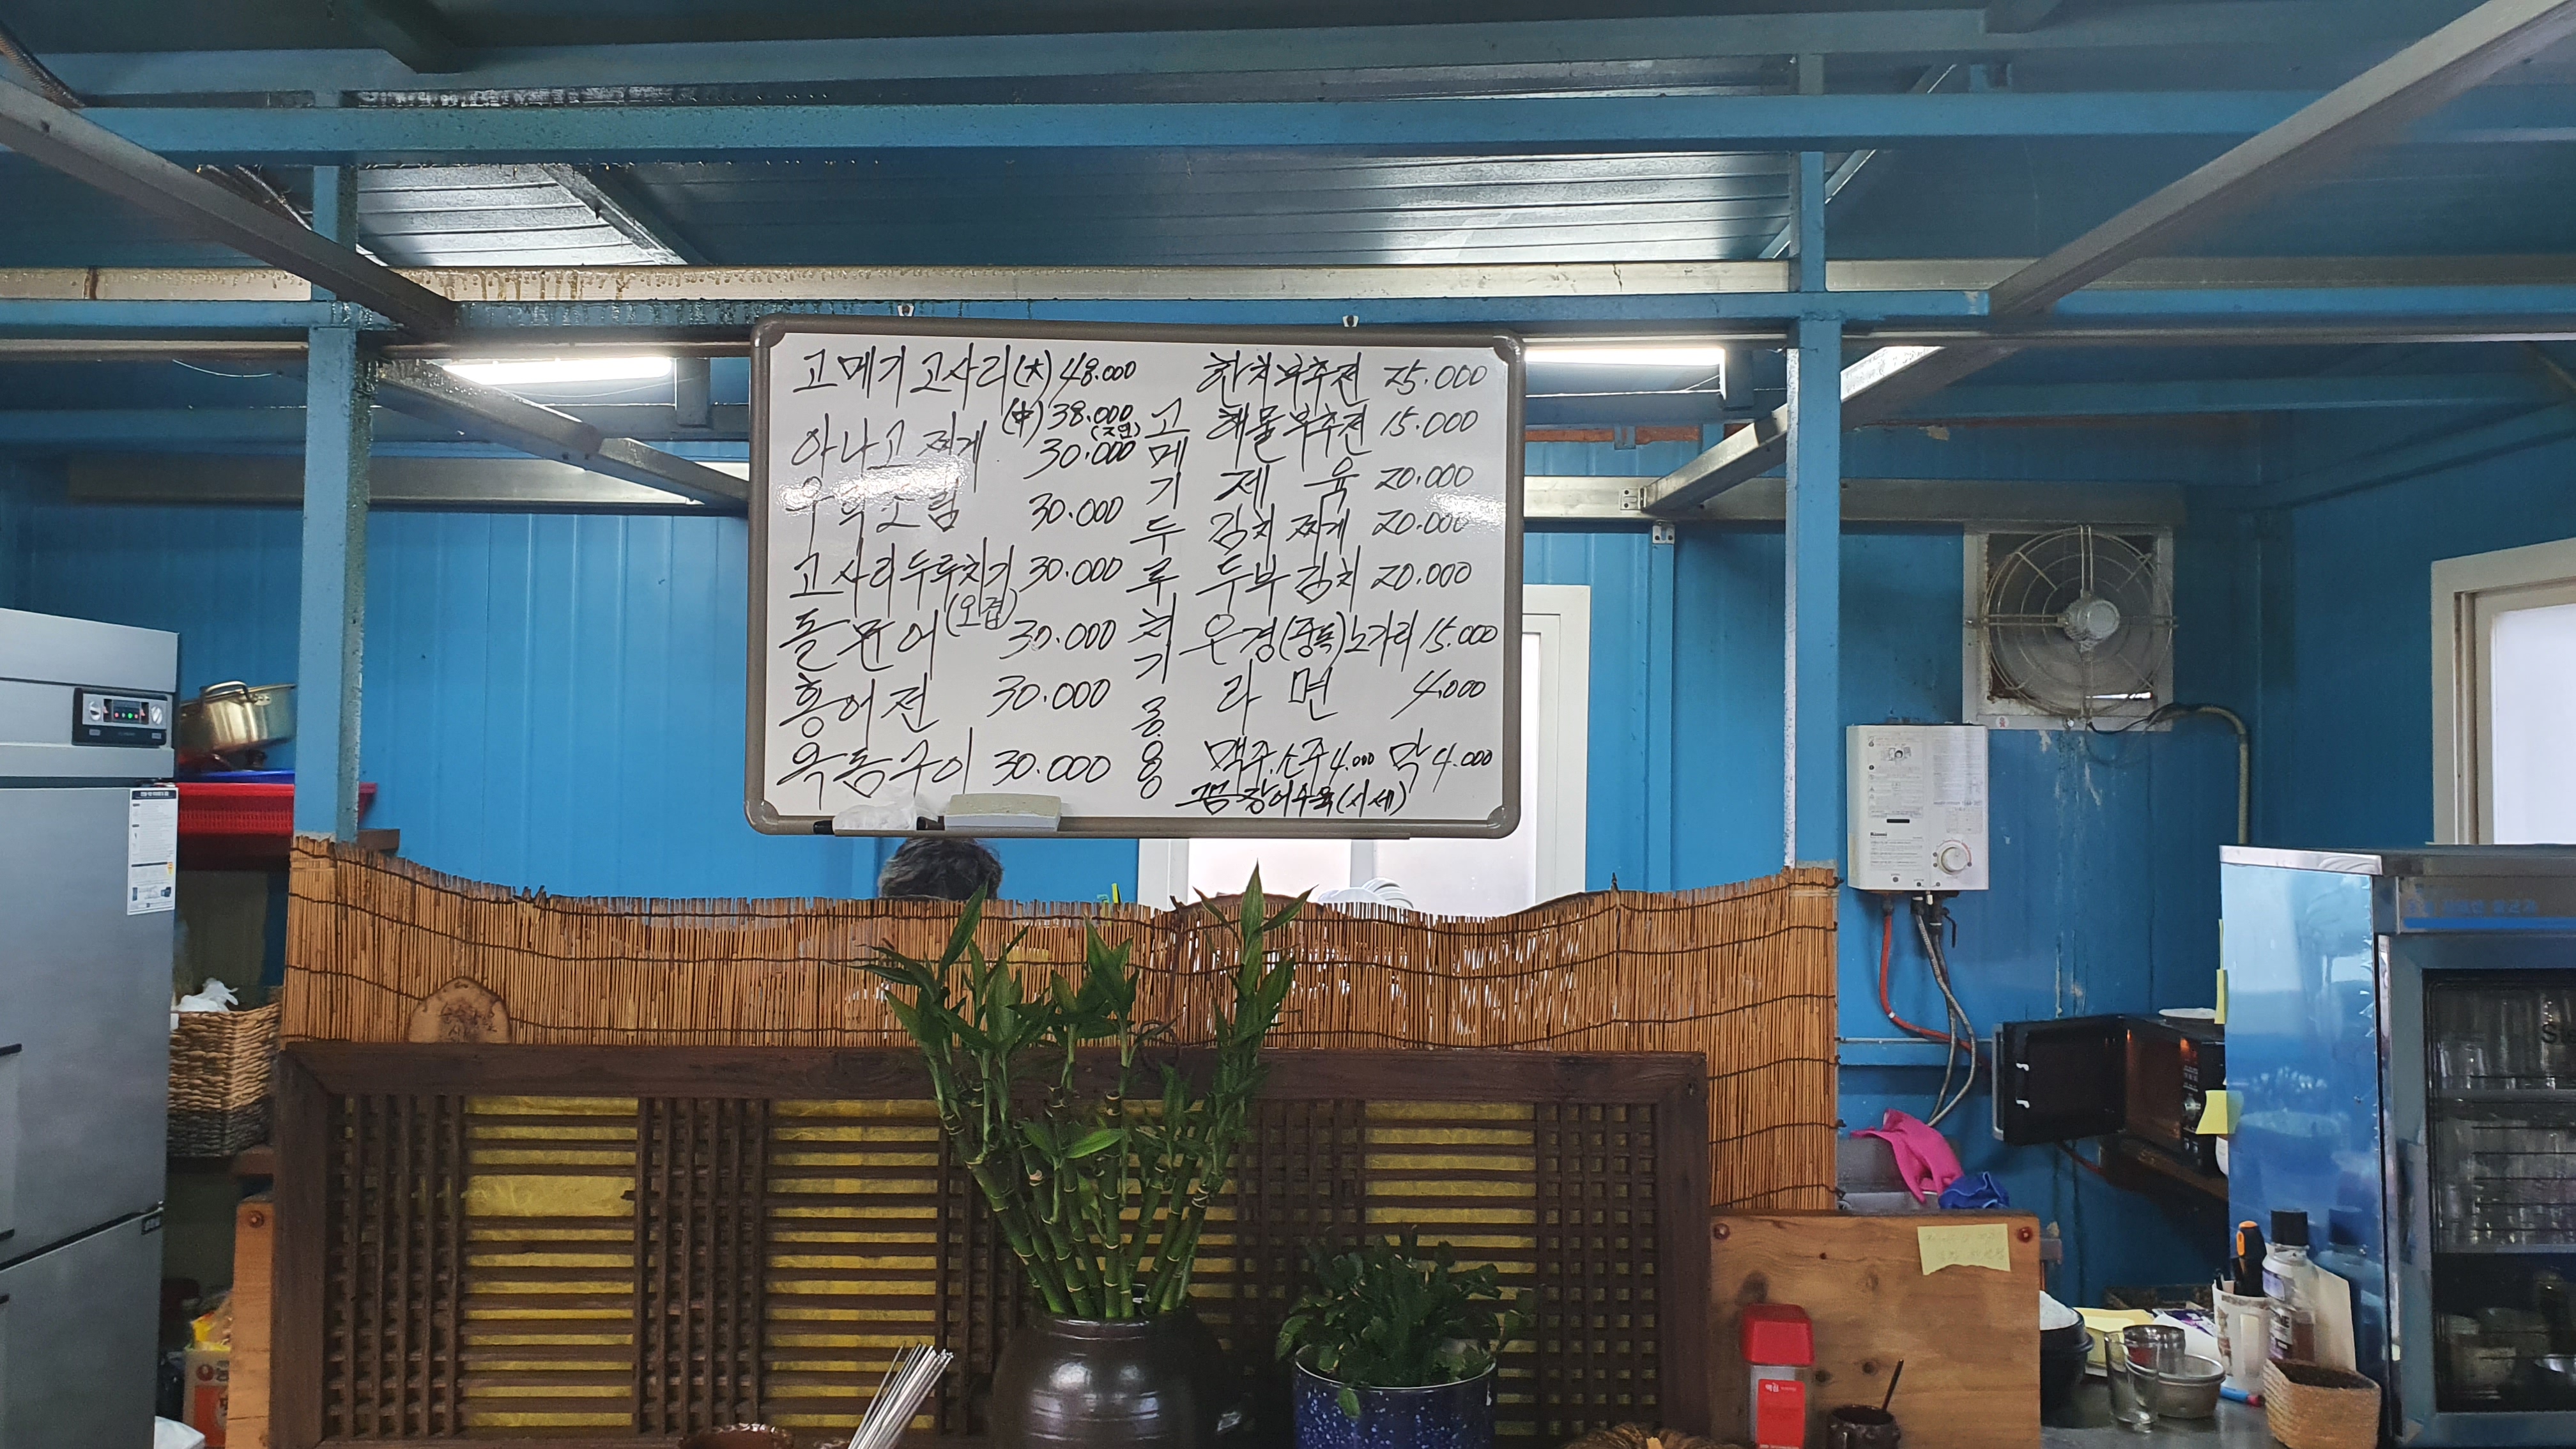 고메기 고사리(大) 48.000
(中) 38.000
아나고 찌게 (자연) 30.000
우럭조림 30.000
고사리두루치기 30.000
(오겹)
돌문어 30.000
홍어전 30.000
옥돔구이 30.000
고메기두루치기
한치부추전 25.000
해물부추전 15.000
제육 20.000
김치찌게 20.000
두부김치 20.000
라면 4.000
맥주.소주 4.000 막 4.000
장어수육(시세)